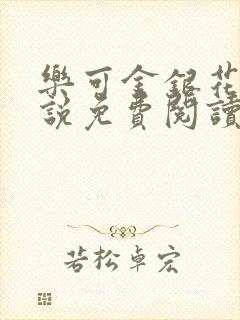 樂可金銀花
說免費閱讀
若松卓宏